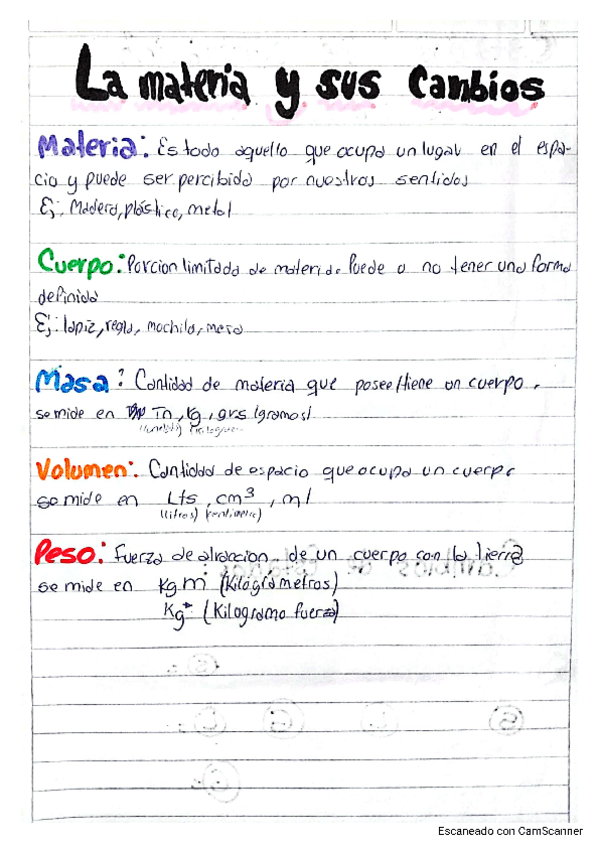 La materia y sus Cambios
Materia: Es todo aquello que ocupa un lugar en el espa-
cio y puede ser percibido por nuestros sentidos
Ej: Madera, plástico, metal
Cuerpo: Porcion limitada de materia. Puede o no tener una forma
definida
Ej: lapiz, regla, mochila, mesa
Masa: Cantidad de materia que posee/tiene un cuerpo.
se mide en Tn, kg, grs (gramos)
Volumen: Cantidad de espacio que ocupa un cuerpo
se mide en Lts, cm³, ml
(litros)
Peso: Fuerza de atraccion de un cuerpo con la tierra
se mide en kgm (Kilográmetros)
Kg* (Kilogramo fuerza)
Escaneado con CamScanner